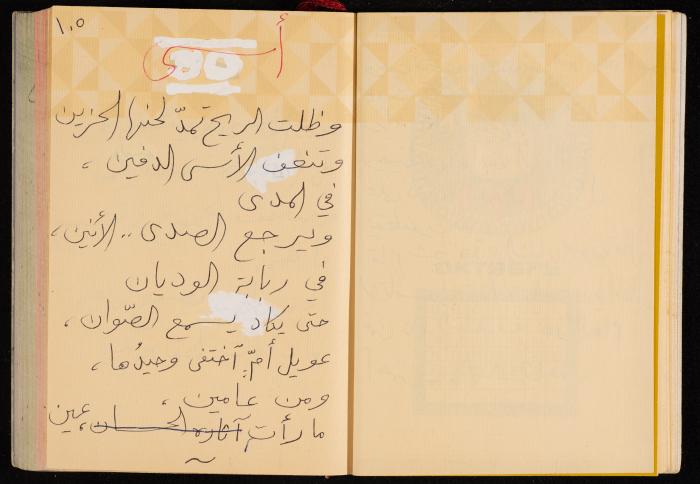 ١٠٥
أسى
وظلت الريح تمدّ لحنها الحزين
وتنعف الأسى الدفين ،
في المدى
ويرجع الصدى .. الأنين،
في ربابة الوديان
حتى يكاد يسمع الصّوان،
عويل أمٍّ آختفى وحيدُها،
ومن عامين ،
ما رأت آثاره عين